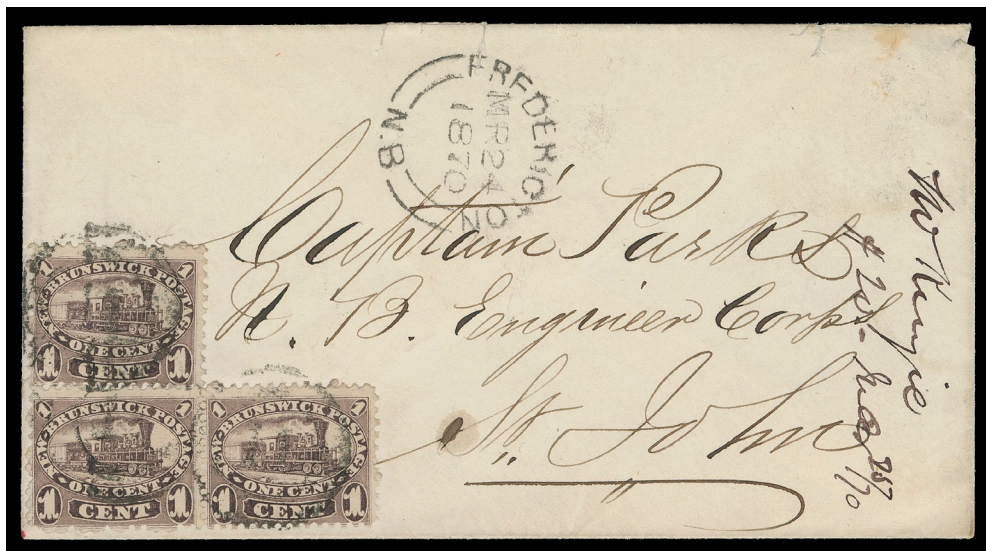 FREDERICTON
MR 24
1870
N.B
Captain Parks
N. B. Engineer Corps
St. John
1 1
NEW-BRUNSWICK POSTAGE
ONE CENT
1 CENT 1
1 1
NEW-BRUNSWICK POSTAGE
ONE CENT
1 CENT 1
1 1
NEW-BRUNSWICK POSTAGE
ONE CENT
1 CENT 1